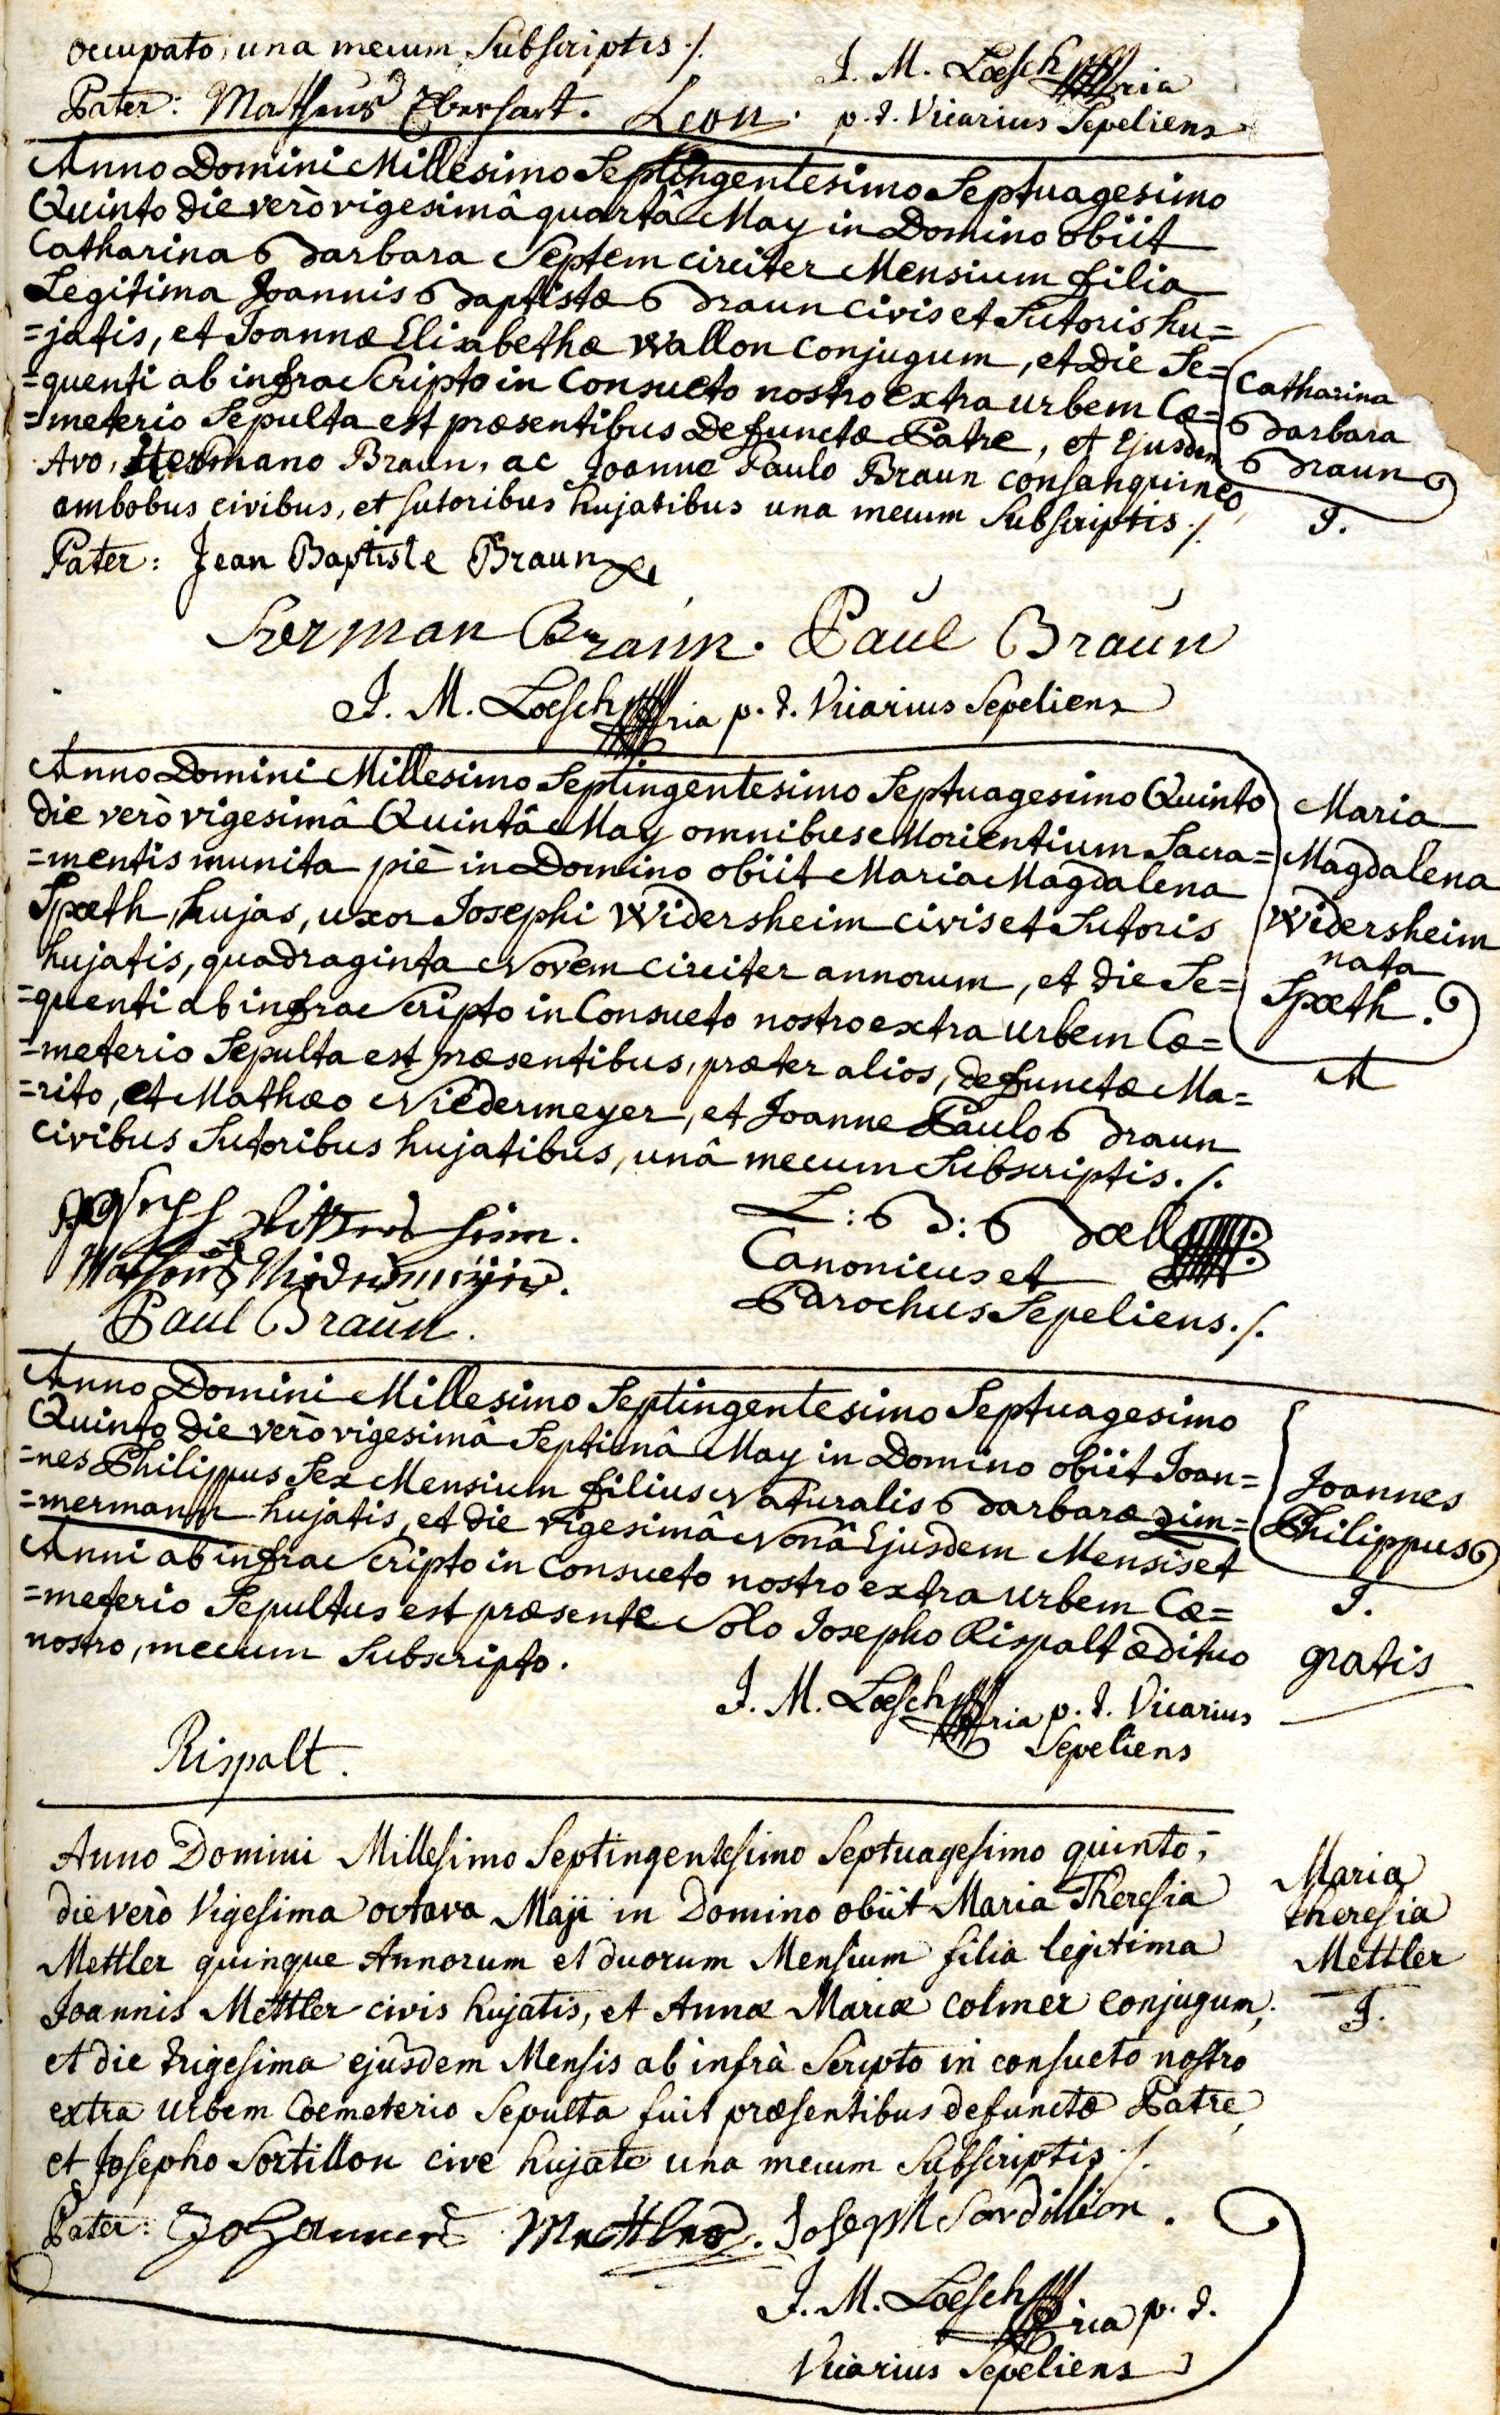 occupato, una mecum Subscriptis ./.
Pater: Matheus Eberhart. Leon. J. M. Loesch
p. t. Vicarius Sepeliens
Anno Domini Millesimo Septingentesimo Septuagesimo
Quinto die verò vigesimâ quartâ May in Domino obiit
Catharina Barbara Septem circiter Mensium filia
Legitima Joannis Baptistæ Braun civis et Sutoris hu=
=jatis, et Joannæ Elisabethæ Wallon conjugum, et die Se=
=quenti ab infra Scripto in Consueto nostro extra urbem Cæ=
=meterio Sepulta est præsentibus defunctæ Patre, et Ejusdem
Avo, Hermano Braun, ac Joanne Paulo Braun consanguineo,
ambobus civibus, et sutoribus hujatibus una mecum Subscriptis ./.
Catharina
Barbara
Braun
J.
Pater: Jean Baptiste Braun
Herman Braun. Paul Braun
J. M. Loesch p. t. Vicarius Sepeliens
Anno Domini Millesimo Septingentesimo Septuagesimo Quinto
die verò vigesimâ Quintâ May omnibus Morientium Sacra=
=mentis munita piè in Domino obiit Maria Magdalena
Spæth, hujas, uxor Josephi Widersheim civis et Sutoris
hujatis, quadraginta Novem circiter annorum, et die Se=
=quenti ab infra Scripto in Consueto nostro extra urbem Cæ=
=meterio Sepulta est præsentibus, præter alios, defunctæ Ma=
=rito, et Mathæo Niedermeyer, et Joanne Paulo Braun
civibus Sutoribus hujatibus, unâ mecum Subscriptis ./.
Maria
Magdalena
Widersheim
nata
Spæth.
M
Paul Braun.
L: B: Boell
Canonicus et
Parochus Sepeliens ./.
Anno Domini Millesimo Septingentesimo Septuagesimo
Quinto die verò vigesimâ Septimâ May in Domino obiit Joan=
=nes Philippus Sex Mensium filius Naturalis Barbaræ Zim=
=mermann hujatis, et die vigesimâ Nonâ Ejusdem Mensis et
Anni ab infra Scripto in Consueto nostro extra urbem Cæ=
=meterio Sepultus est præsente Solo Josepho Rispalt ædituo
nostro, mecum Subscripto.
Joannes
Philippus
J.
gratis
J. M. Loesch p. t. Vicarius
Sepeliens
Rispalt.
Anno Domini Millesimo Septingentesimo Septuagesimo quinto,
die verò Vigesima octava Maji in Domino obiit Maria Theresia
Mettler quinque Annorum et duorum Mensium filia legitima
Joannis Mettler civis hujatis, et Annæ Mariæ Colmer conjugum,
et die trigesima ejusdem Mensis ab infrà Scripto in consueto nostro
extra urbem Coemeterio Sepulta fuit præsentibus defunctæ Patre,
et Josepho Sortillon cive hujate una mecum Subscriptis ./.
Maria
Theresia
Mettler
J.
Pater: Johannes Mettler. Joseph Sordillion.
J. M. Loesch p. t.
Vicarius Sepeliens